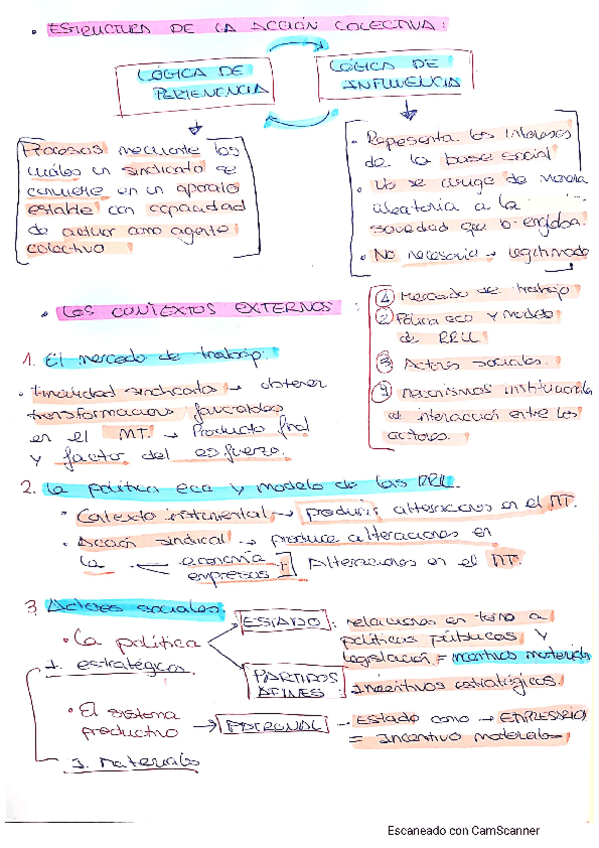 • ESTRUCTURA DE LA ACCIÓN COLECTIVA:
LÓGICA DE
PERTENENCIA
LÓGICA DE
INFLUENCIA
Procesos mediante los
cuáles un sindicato se
convierte en un aparato
estable con capacidad
de actuar como agente
colectivo
• Representa los intereses
de la base social
• No se dirige de manera
aleatoria a la
sociedad que lo engloba.
• No necesaria → legitimada
• LOS CONTEXTOS EXTERNOS:
① Mercado de trabajo
② Política eco y modelo
de RRLL.
③ Actores sociales.
④ Mecanismos institucionales
de interacción entre los
actores.
1. El mercado de trabajo:
• Finalidad sindicato → obtener
transformaciones favorables
en el MT. → Producto final
y factor del esfuerzo.
2. La política eco y modelo de las RRLL.
• Contexto instrumental → producir alteraciones en el MT.
• Acción sindical → produce alteraciones en
la ← economía
empresas
Alteraciones en el MT.
3. Actores sociales.
• La política
I. estratégicos
ESTADO: relaciones en torno a
políticas públicas y
legislación = incentivos materiales
PARTIDOS
AFINES
Incentivos estratégicos.
• El sistema
productivo
→ PATRONAL → Estado como → EMPRESARIO
= Incentivo materiales
I. materiales
Escaneado con CamScanner